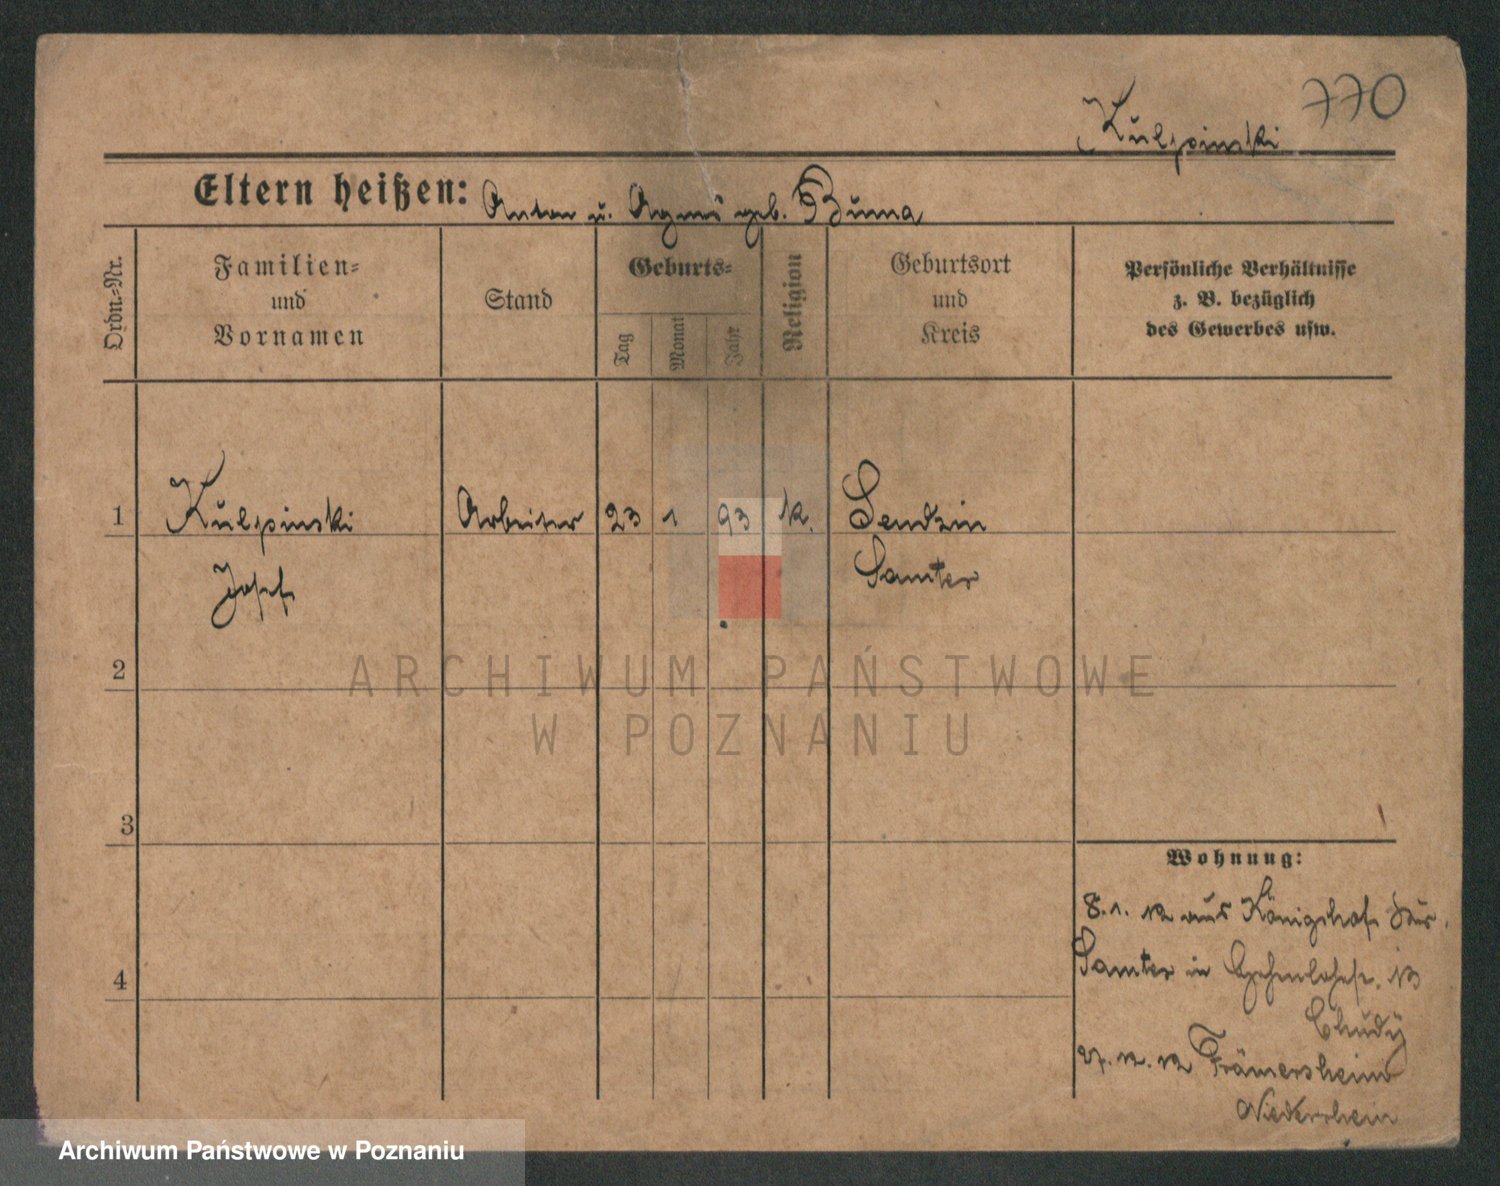 770
Kulpinski
Eltern heißen: Anton u. Agnes geb. Buma
Ordn.-Nr.
Familien-
und
Vornamen
Stand
Geburts-
Tag
Monat
Jahr
Religion
Geburtsort
und
Kreis
Persönliche Verhältnisse
z. B. bezüglich
des Gewerbes usw.
1
Kulpinski
Josef
Arbeiter
23
1
93
k.
Sendzin
Samter
2
3
4
Wohnung:
8.1.12 aus Königshof
Samter in 13
Chudy
27.12.12 Främersheim
Niederrhein
ARCHIWUM PAŃSTWOWE
W POZNANIU
Archiwum Państwowe w Poznaniu